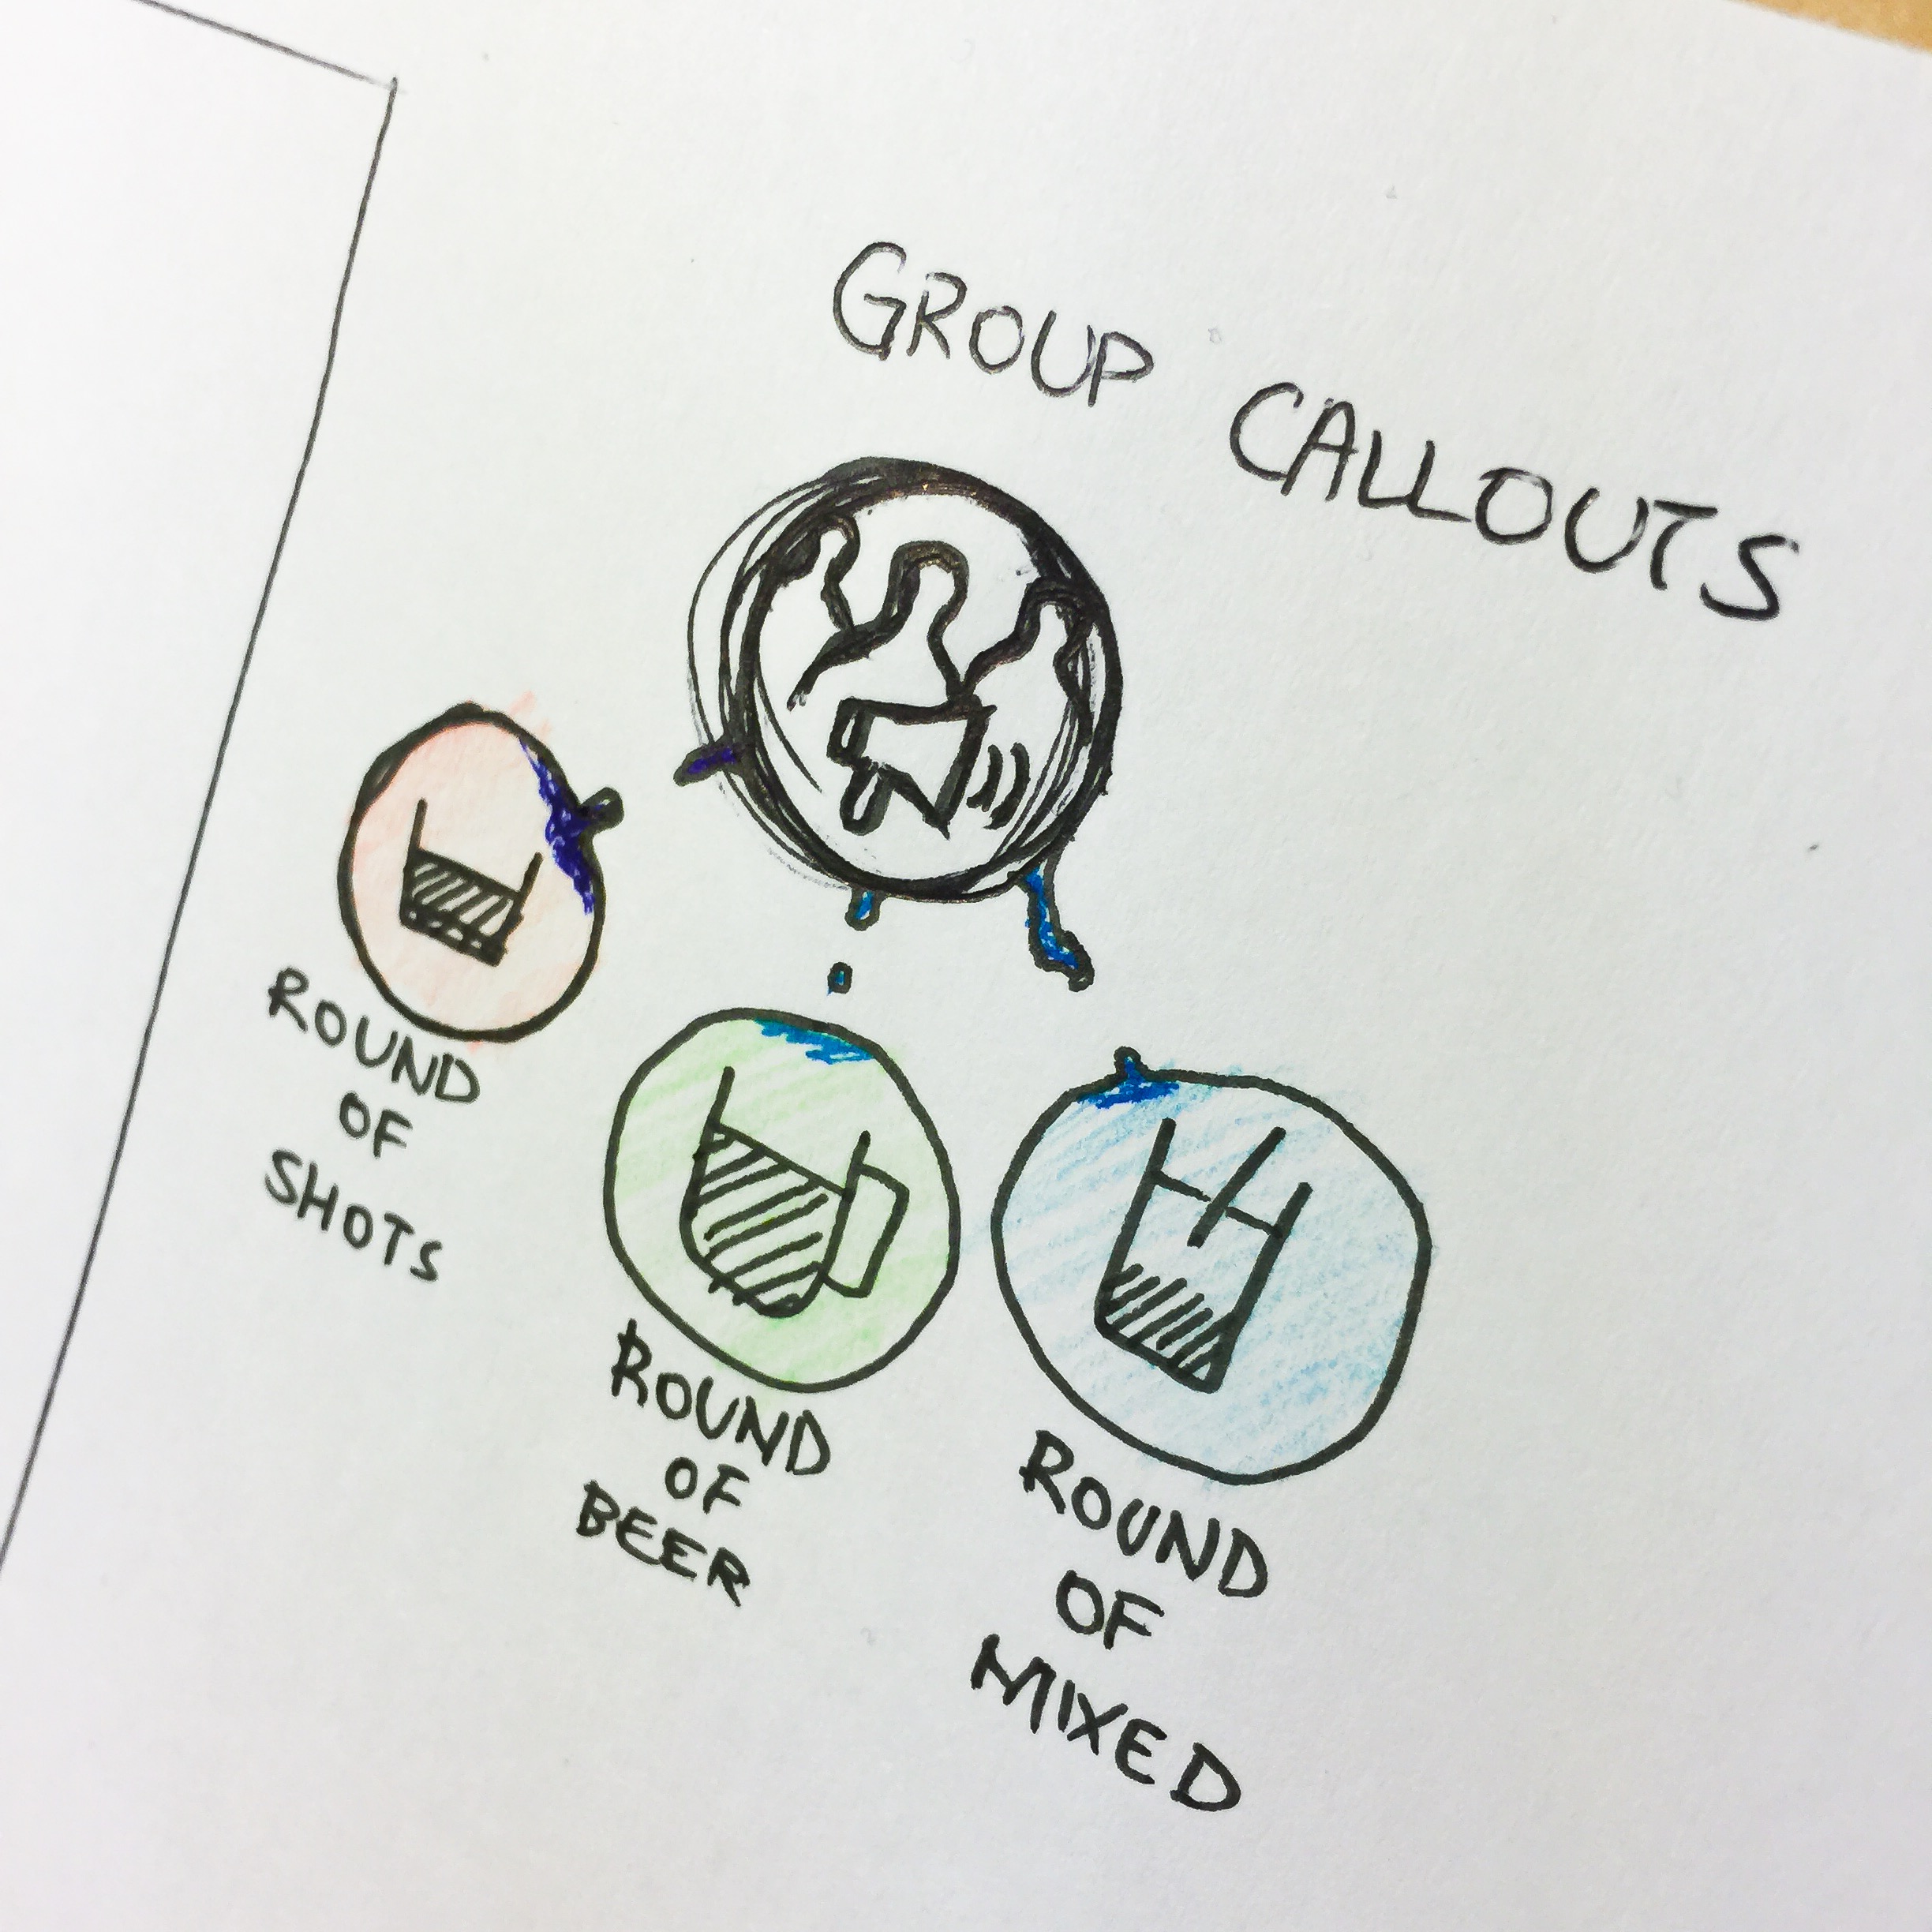 GROUP CALLOUTS
ROUND
OF
SHOTS
ROUND
OF
BEER
ROUND
OF
MIXED